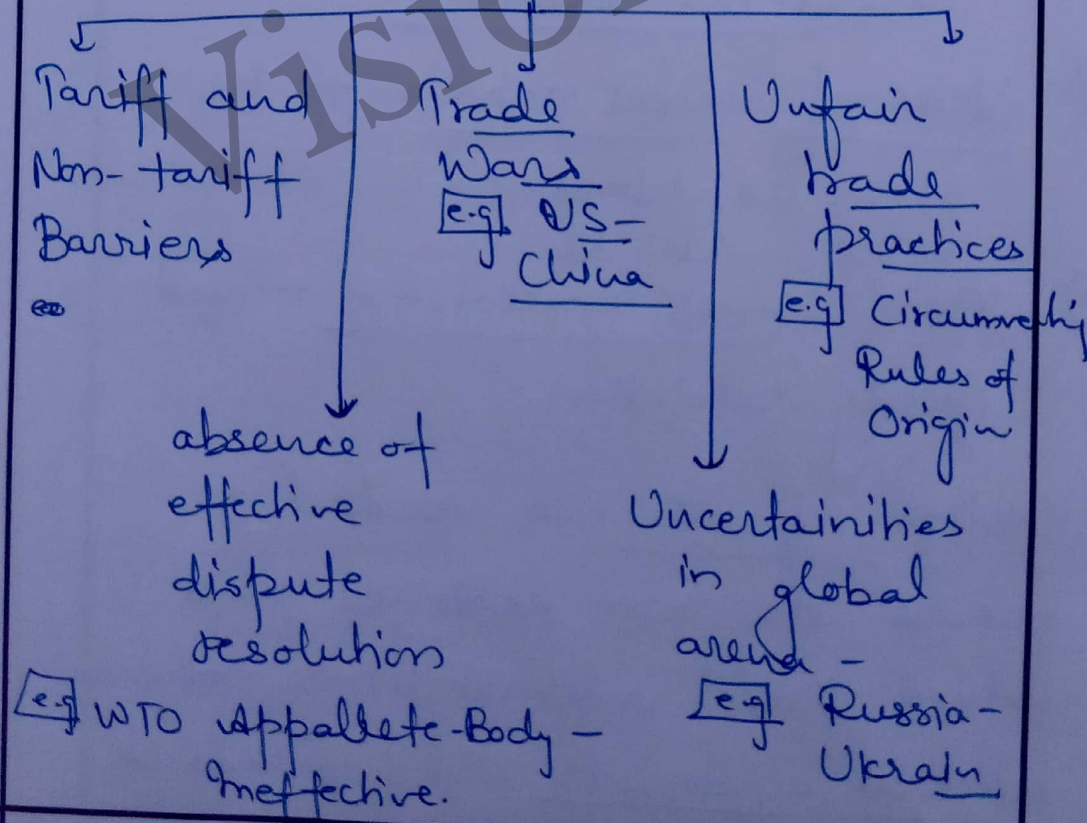 Tariff and
Non-tariff
Barriers
Trade
Wars
e.g US-
China
Unfair
trade
practices
e.g Circumventing
Rules of
Origin
absence of
effective
dispute
resolution
e.g WTO Appallete-Body -
Ineffective.
Uncertainities
in global
arena -
e.g Russia-
Ukrain
Vision